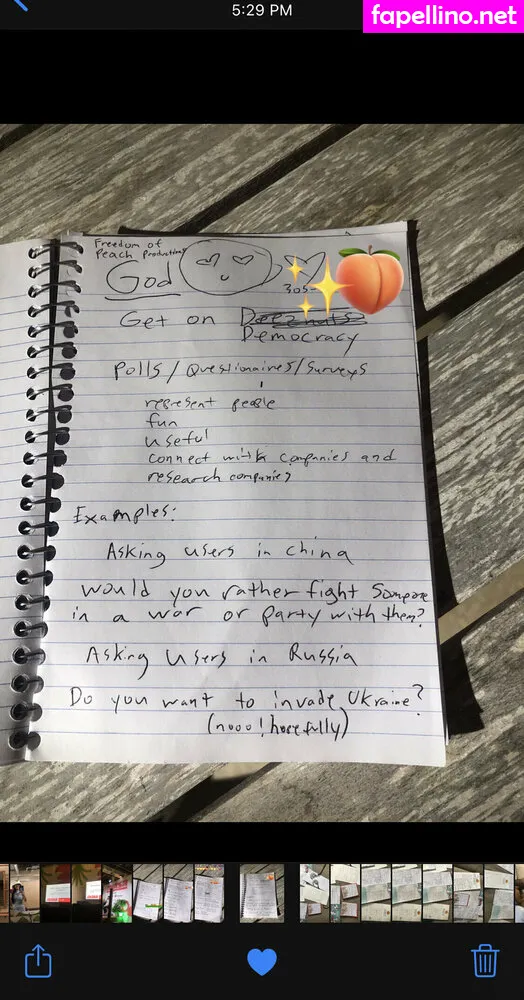 5:29 PM
fapellino.net
Freedom of
Peach Productions
God
305-
Get on Deeznuts
Democracy
Polls / Questionaires / Surveys
represent people
fun
useful
connect with companies and
research companies
Examples:
Asking users in china
Would you rather fight someone
in a war or party with them?
Asking Users in Russia
Do you want to invade Ukraine?
(nooo! hopefully)